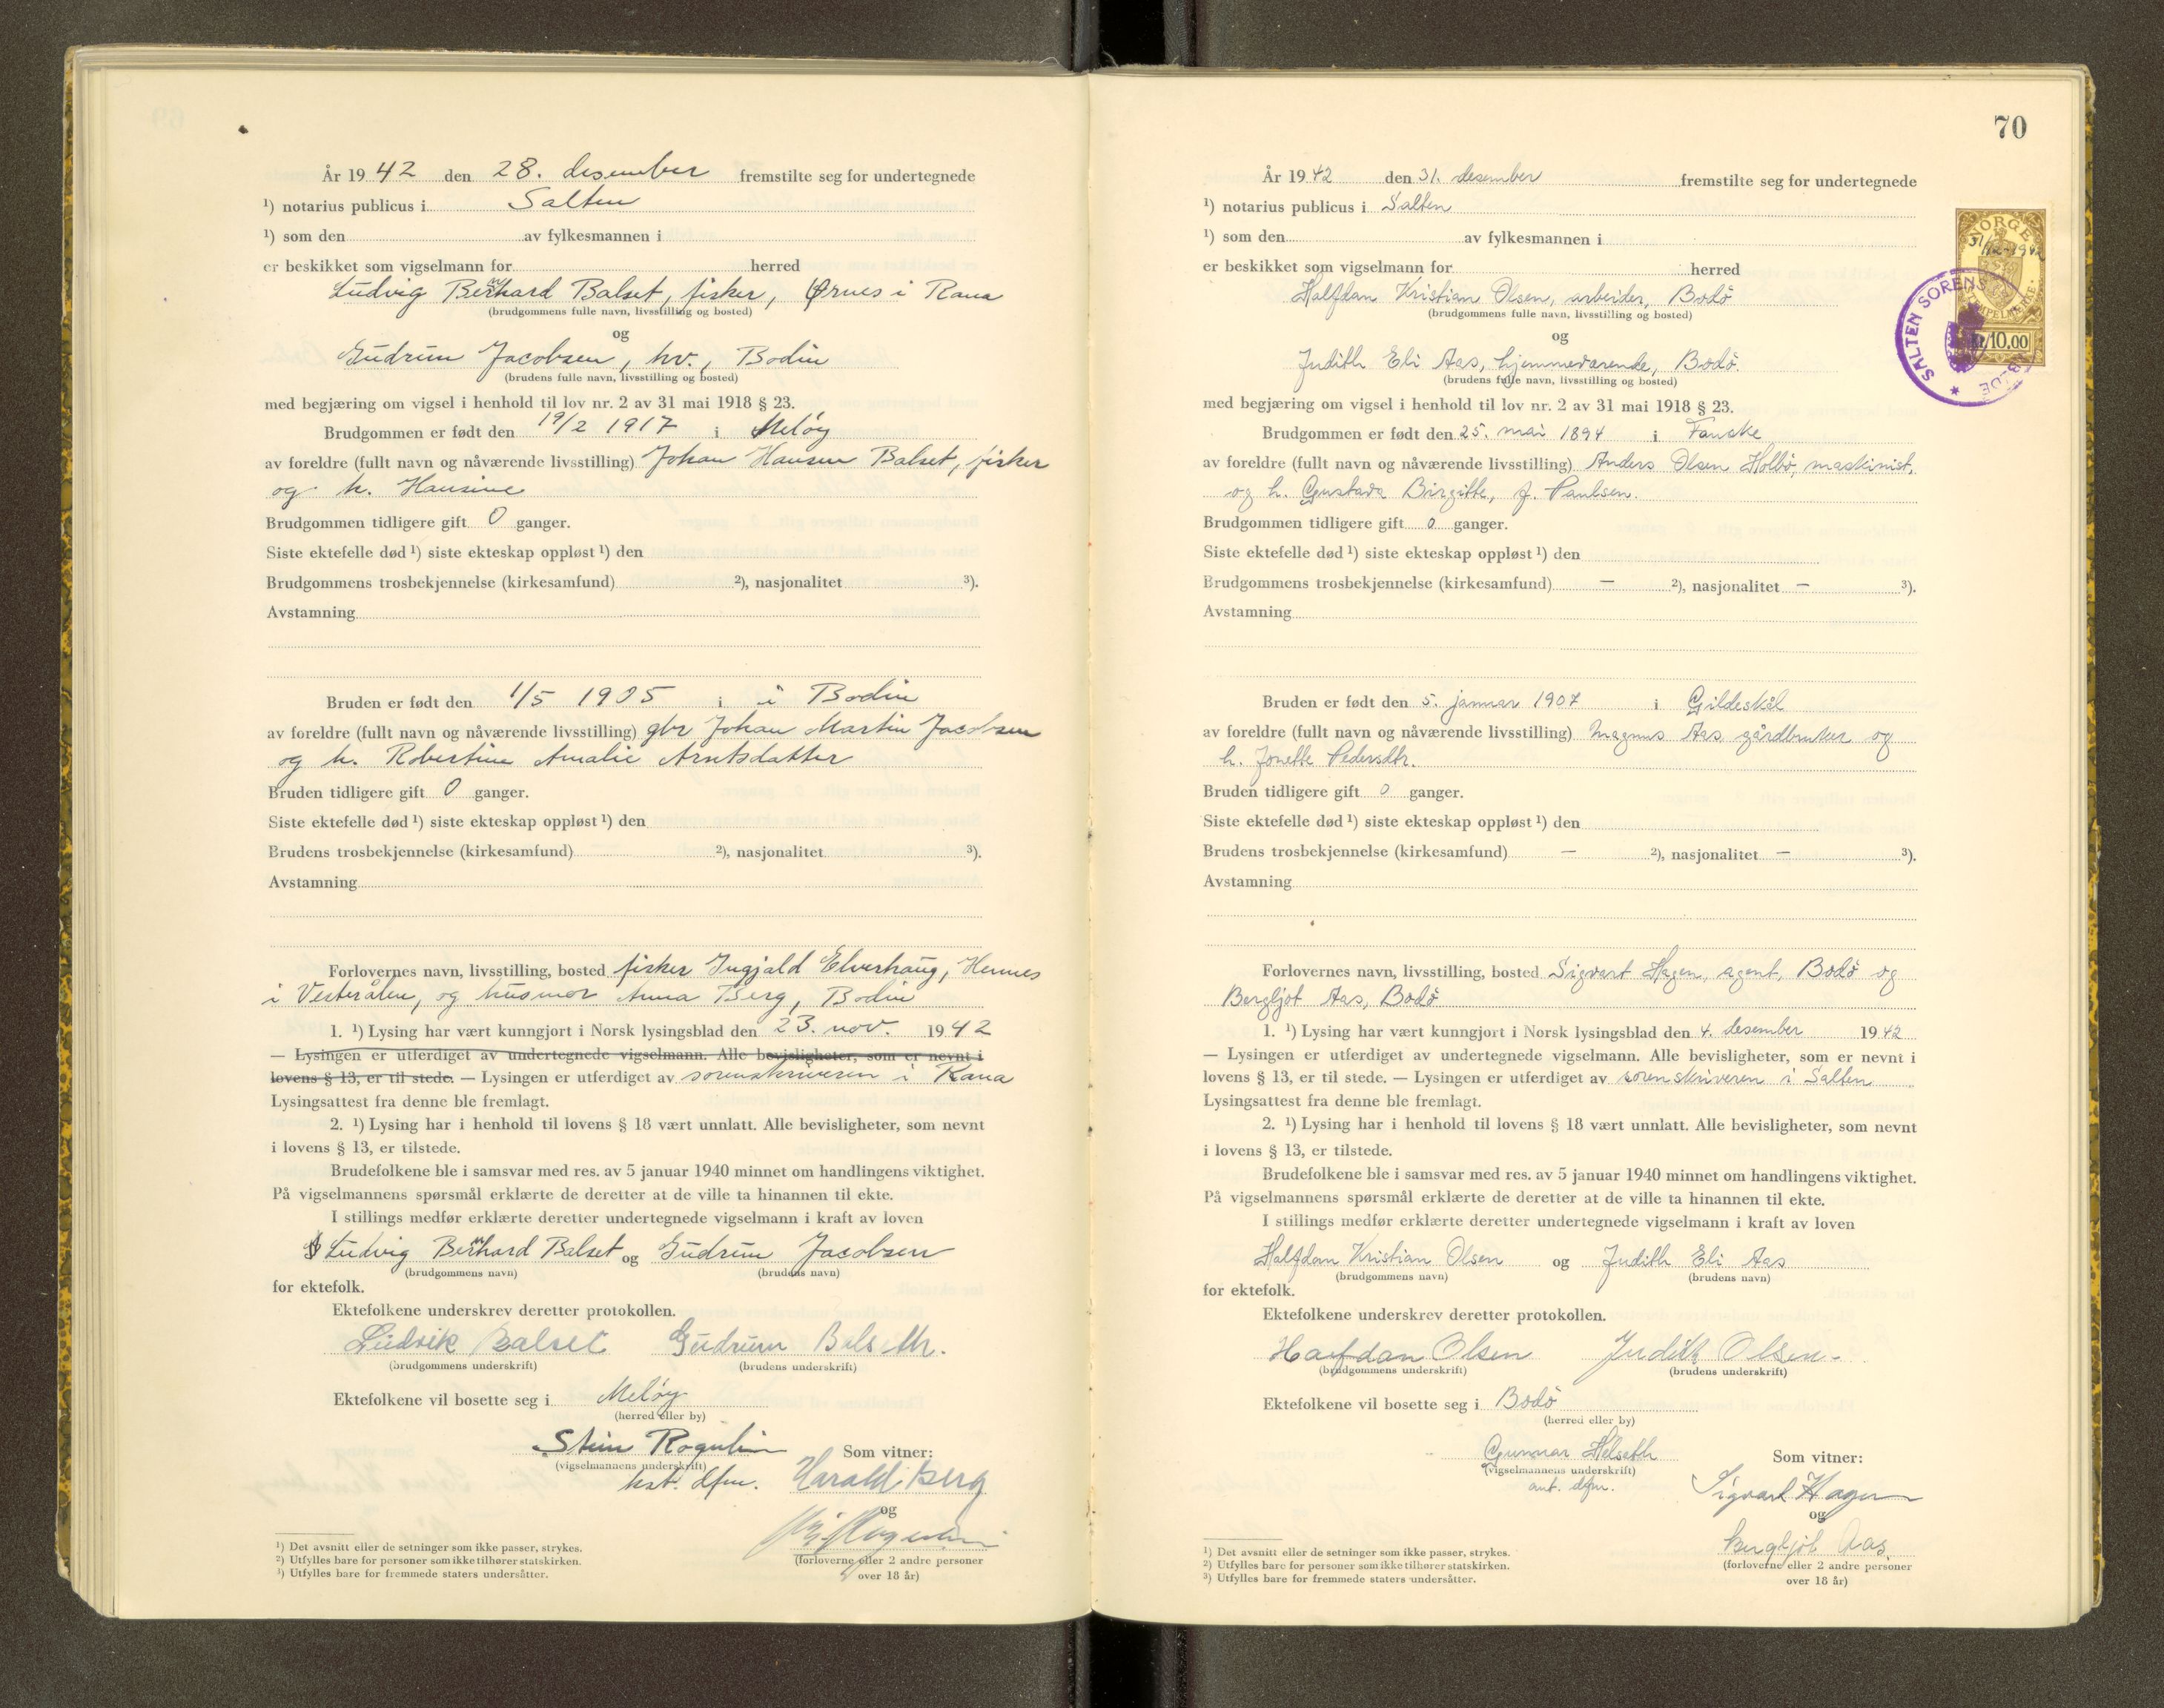 År 1942 den 28. desember fremstilte seg for undertegnede
¹) notarius publicus i Salten
¹) som den av fylkesmannen i
er beskikket som vigselmann for herred
Ludvig Bernhard Balset, fisker, Ørnes i Rana
(brudgommens fulle navn, livsstilling og bosted)
og
Gudrun Jacobsen, hv., Bodin
(brudens fulle navn, livsstilling og bosted)
med begjæring om vigsel i henhold til lov nr. 2 av 31 mai 1918 § 23.
Brudgommen er født den 19/2 1917 i Meløy
av foreldre (fullt navn og nåværende livsstilling) Johan Hansen Balset, fisker
og h. Hansine
Brudgommen tidligere gift 0 ganger.
Siste ektefelle død ¹) siste ekteskap oppløst ¹) den
Brudgommens trosbekjennelse (kirkesamfund) ²), nasjonalitet ³).
Avstamning
Bruden er født den 1/5 1905 i i Bodin
av foreldre (fullt navn og nåværende livsstilling) gbr Johan Martin Jacobsen
og h. Robertine Amalie Arntsdatter
Bruden tidligere gift 0 ganger.
Siste ektefelle død ¹) siste ekteskap oppløst ¹) den
Brudens trosbekjennelse (kirkesamfund) ²), nasjonalitet ³).
Avstamning
Forlovernes navn, livsstilling, bosted fisker Ingjald Elverhaug, Hennes
i Vesterålen, og husmor Anna Berg, Bodin
1. ¹) Lysing har vært kunngjort i Norsk lysingsblad den 23. nov. 1942
— Lysingen er utferdiget av undertegnede vigselmann. Alle bevisligheter, som er nevnt i
lovens § 13, er til stede. — Lysingen er utferdiget av sorenskriveren i Rana
Lysingsattest fra denne ble fremlagt.
2. ¹) Lysing har i henhold til lovens § 18 vært unnlatt. Alle bevisligheter, som nevnt
i lovens § 13, er tilstede.
Brudefolkene ble i samsvar med res. av 5 januar 1940 minnet om handlingens viktighet.
På vigselmannens spørsmål erklærte de deretter at de ville ta hinannen til ekte.
I stillings medfør erklærte deretter undertegnede vigselmann i kraft av loven
Ludvig Bernhard Balset og Gudrun Jacobsen
(brudgommens navn) (brudens navn)
for ektefolk.
Ektefolkene underskrev deretter protokollen.
Ludvik Balset Gudrun Balseth.
(brudgommens underskrift) (brudens underskrift)
Ektefolkene vil bosette seg i Meløy
(herred eller by)
Som vitner:
(vigselmannens underskrift)
kst. dfm. Harald Berg
og
(forloverne eller 2 andre personer
over 18 år)
¹) Det avsnitt eller de setninger som ikke passer, strykes.
²) Utfylles bare for personer som ikke tilhører statskirken.
³) Utfylles bare for fremmede staters undersåtter.
70
År 1942 den 31. desember fremstilte seg for undertegnede
¹) notarius publicus i Salten
¹) som den av fylkesmannen i
er beskikket som vigselmann for herred
Halfdan Kristian Olsen, arbeider, Bodø
(brudgommens fulle navn, livsstilling og bosted)
og
Judith Eli Aas, hjemmeværende, Bodø.
(brudens fulle navn, livsstilling og bosted)
med begjæring om vigsel i henhold til lov nr. 2 av 31 mai 1918 § 23.
Brudgommen er født den 25. mai 1894 i Fauske
av foreldre (fullt navn og nåværende livsstilling) Anders Olsen Holbø, maskinist,
og h. Gustava Birgitte, f. Paulsen.
Brudgommen tidligere gift 0 ganger.
Siste ektefelle død ¹) siste ekteskap oppløst ¹) den
Brudgommens trosbekjennelse (kirkesamfund) — ²), nasjonalitet — ³).
Avstamning
Bruden er født den 5. januar 1907 i Gildeskål
av foreldre (fullt navn og nåværende livsstilling) Magnus Aas, gårdbruker og
h. Jonette Pedersdtr.
Bruden tidligere gift 0 ganger.
Siste ektefelle død ¹) siste ekteskap oppløst ¹) den
Brudens trosbekjennelse (kirkesamfund) — ²), nasjonalitet — ³).
Avstamning
Forlovernes navn, livsstilling, bosted Sigvart Hagen, agent, Bodø og
Bergljot Aas, Bodø
1. ¹) Lysing har vært kunngjort i Norsk lysingsblad den 4. desember 1942
— Lysingen er utferdiget av undertegnede vigselmann. Alle bevisligheter, som er nevnt i
lovens § 13, er til stede. — Lysingen er utferdiget av sorenskriveren i Salten
Lysingsattest fra denne ble fremlagt.
2. ¹) Lysing har i henhold til lovens § 18 vært unnlatt. Alle bevisligheter, som nevnt
i lovens § 13, er tilstede.
Brudefolkene ble i samsvar med res. av 5 januar 1940 minnet om handlingens viktighet.
På vigselmannens spørsmål erklærte de deretter at de ville ta hinannen til ekte.
I stillings medfør erklærte deretter undertegnede vigselmann i kraft av loven
Halfdan Kristian Olsen og Judith Eli Aas
(brudgommens navn) (brudens navn)
for ektefolk.
Ektefolkene underskrev deretter protokollen.
Halfdan Olsen Judith Olsen
(brudgommens underskrift) (brudens underskrift)
Ektefolkene vil bosette seg i Bodø
(herred eller by)
Gunnar Helseth Som vitner:
(vigselmannens underskrift)
aut. dfm. Sigvart Hagen
og
Bergljot Aas
(forloverne eller 2 andre personer
over 18 år)
¹) Det avsnitt eller de setninger som ikke passer, strykes.
²) Utfylles bare for personer som ikke tilhører statskirken.
³) Utfylles bare for fremmede staters undersåtter.
NORGE
31/12-1942
STEMPELMERKE
Kr. 10.00
SALTEN SORENS